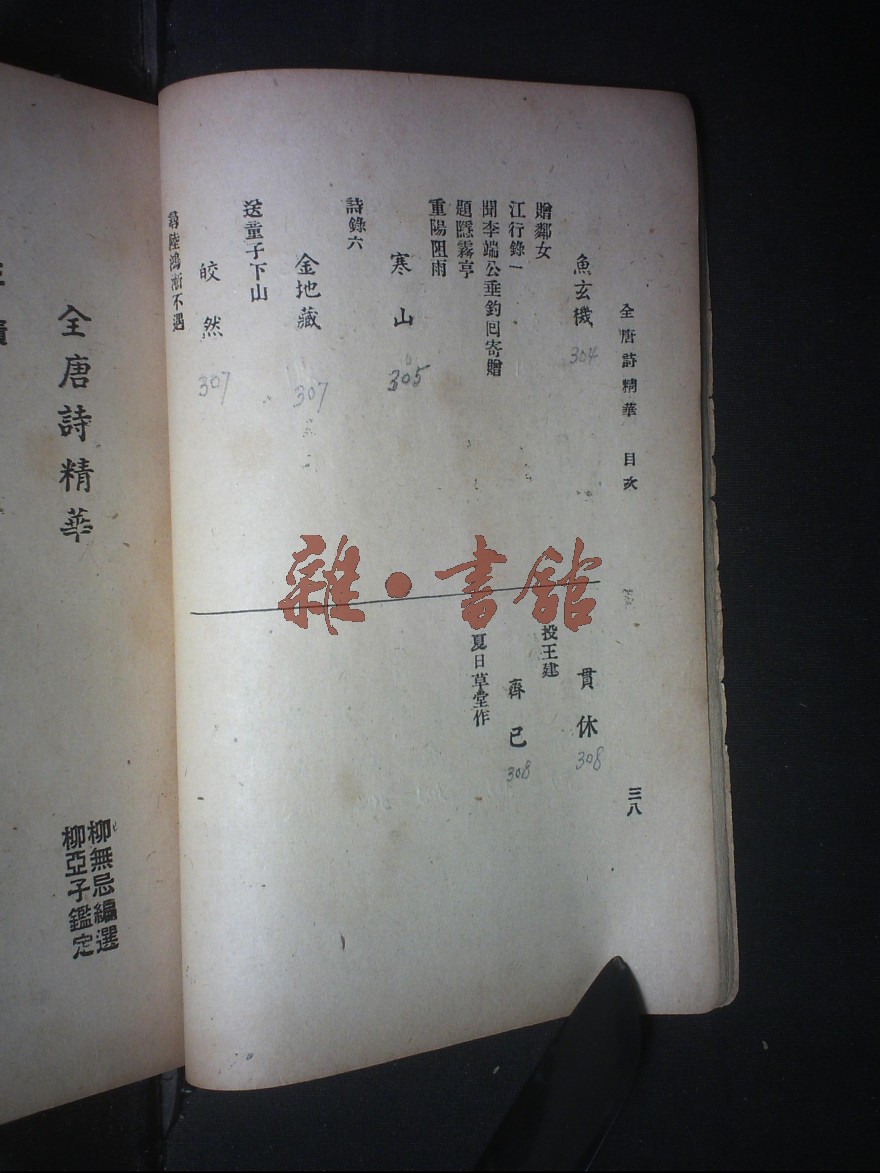 全唐詩精華 目次
魚玄機 304
贈鄰女
江行錄一
聞李端公垂釣回寄贈
題隱霧亭
重陽阻雨
寒山 305
詩錄六
金地藏 307
送童子下山
皎然 307
尋陸鴻漸不遇
貫休 308
投王建
齊己 308
夏日草堂作
三八
雜·書館
全唐詩精華
柳無忌編選
柳亞子鑑定